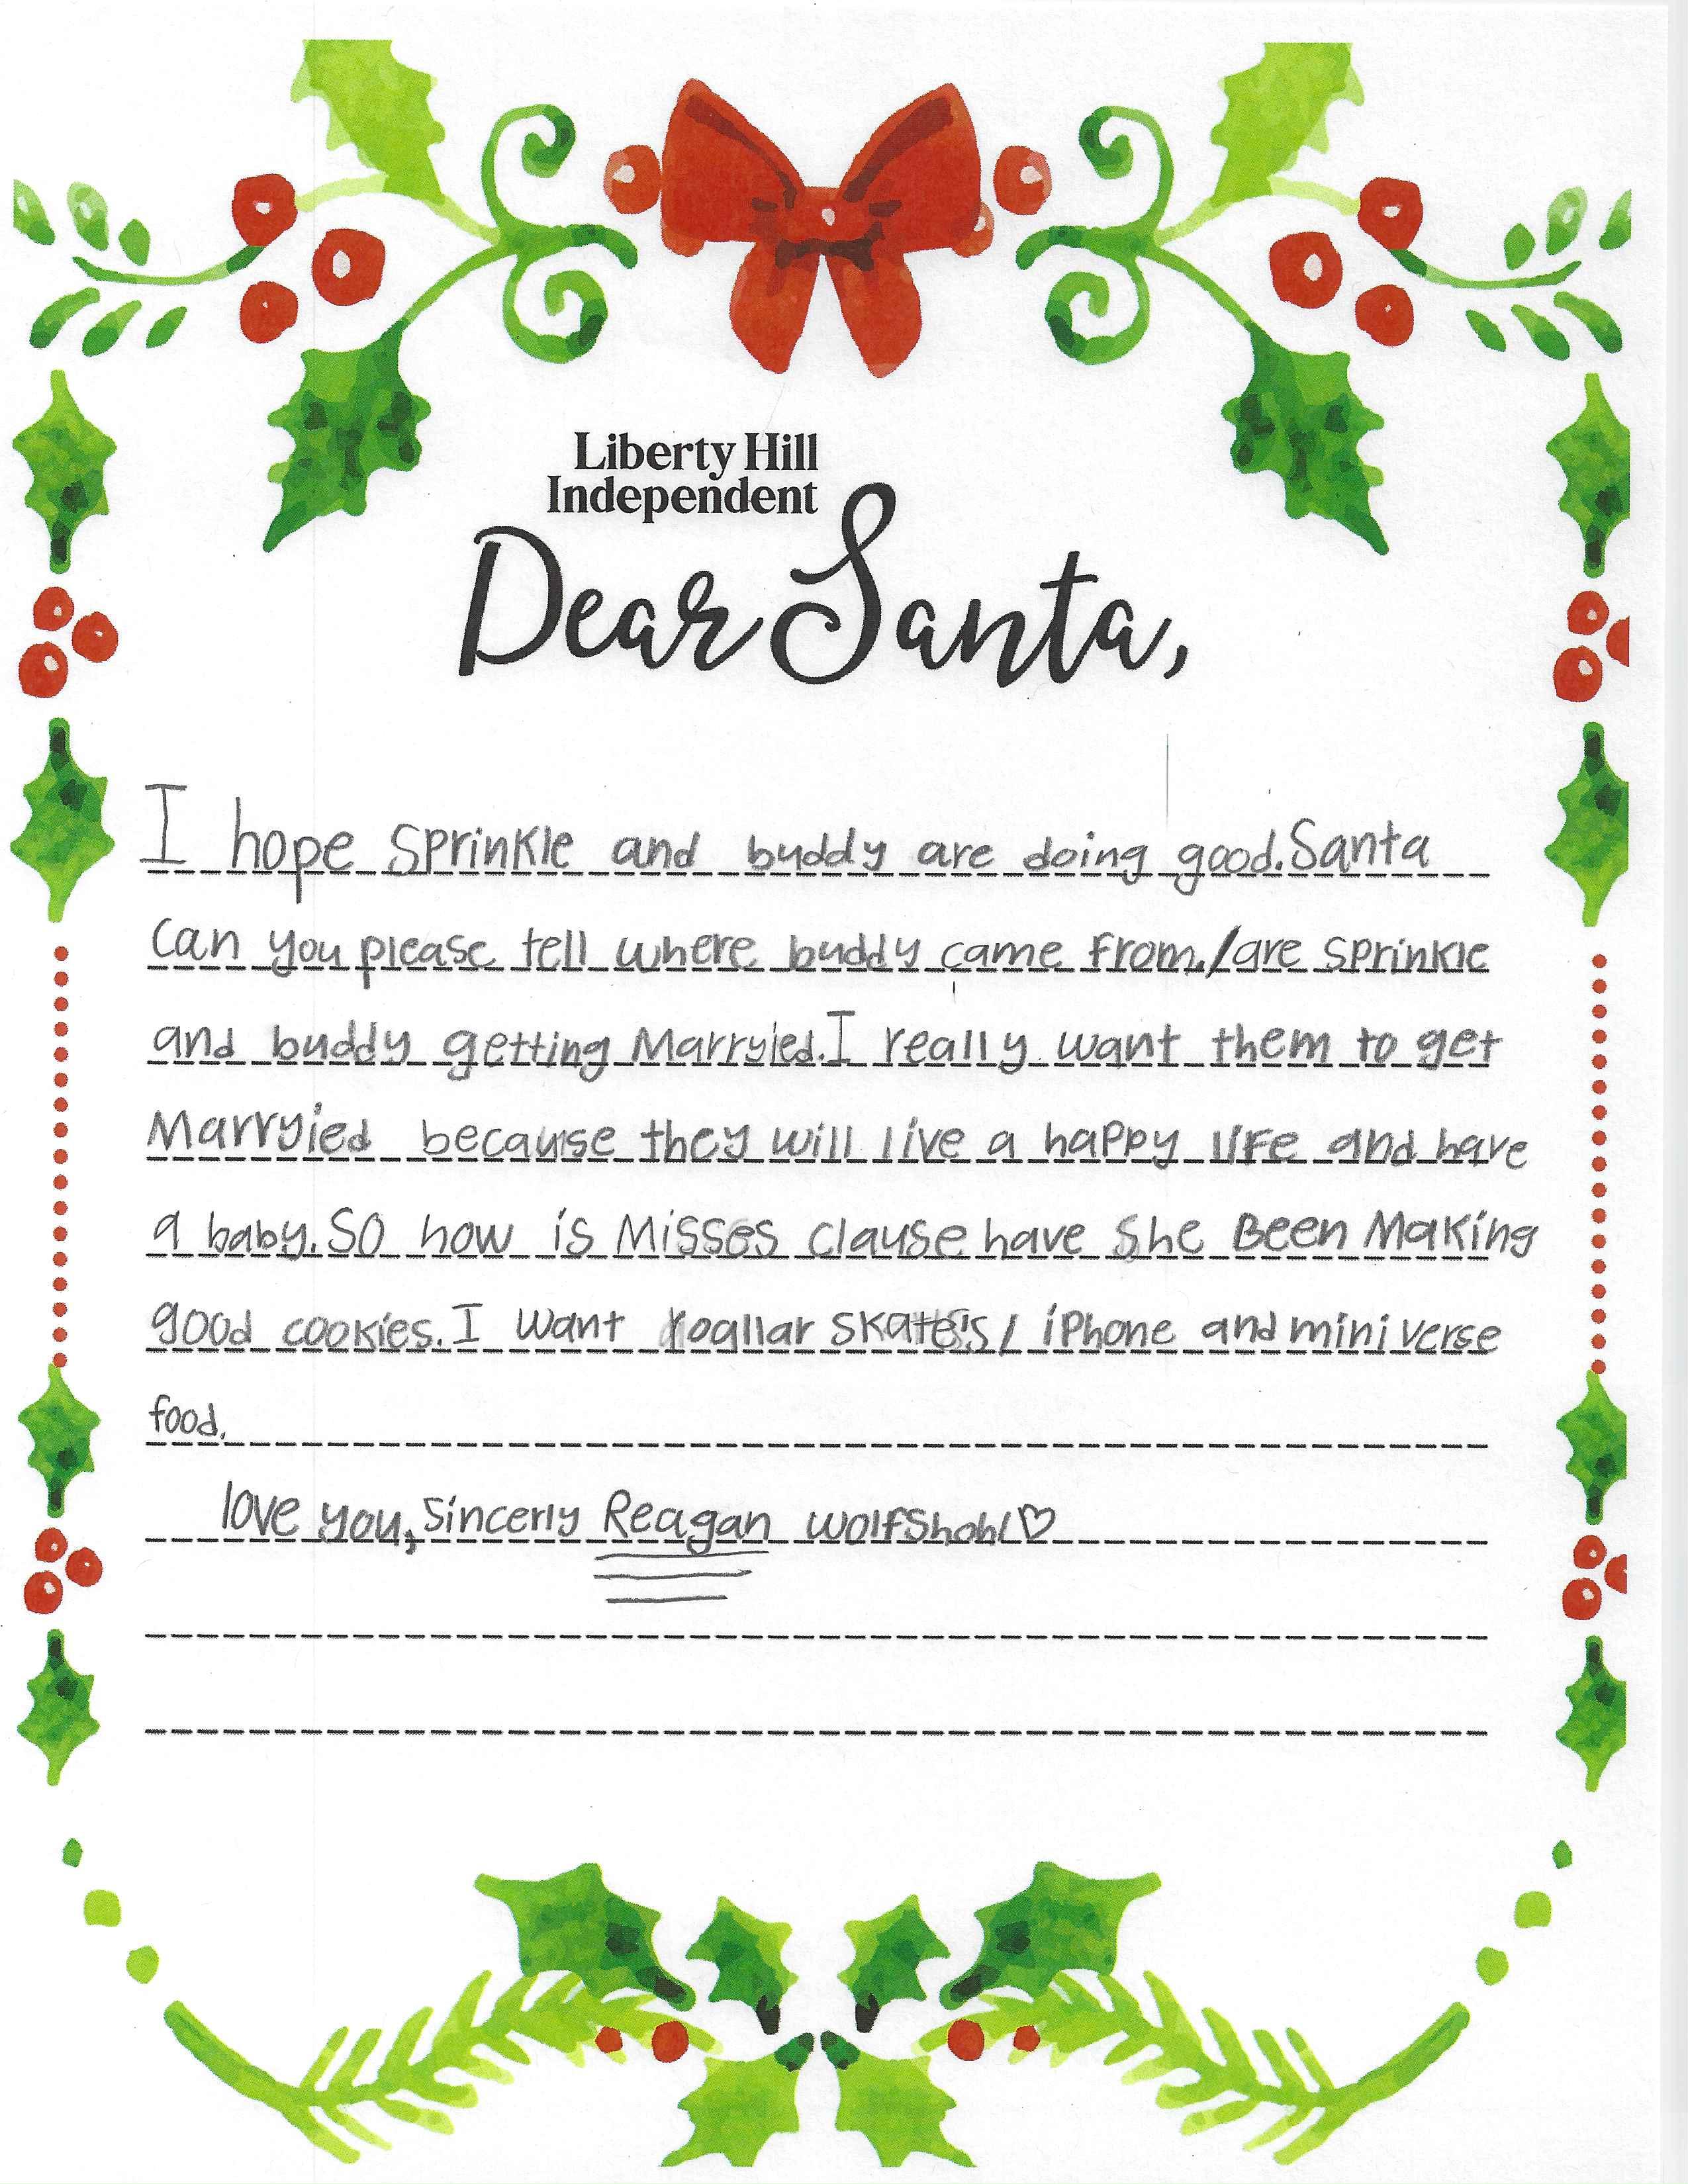 Liberty Hill
Independent
Dear Santa,
I hope sprinkle and buddy are doing good. Santa
can you please tell where buddy came from./are sprinkle
and buddy getting Marryied. I really want them to get
Marryied because they will live a happy life and have
a baby. So how is Missës clause have she Been Making
good cookies. I want rogllar skates/ iPhone and mini verse
food.
love you, Sincerly Reagan wolfshohl♡